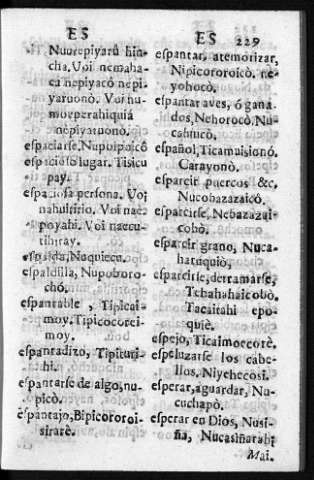 ES
Nuurepiyarû hin-
cha. Voi nemaha-
ca nepiyacó nepi-
yaruonò. Voi nu-
morperahiquiá
nepiyaruonò.
espaciarse, Nupoipaicô
espacioso lugar. Tisicu
pay.
espaciosa persona. Voi
nahulsirio. Voi nae-
poyahi. Voi naecu-
tihiray.
espalda, Nuquiecu.
espaldilla, Nupoboro-
chó.
espantable, Tipicai
moy. Tipicocorei-
moy.
espantadizo, Tipicuri-
hi.
espantarse de algo, nu-
picò.
espantajo, Bipicororoi-
sirare.
ES 229
espantar, atemorizar,
Nipicororoicò. ne-
yohocò.
espantar aves, ó gana-
dos, Nehorocò, Nu-
cahucò.
español, Ticamuisionó.
Carayonò.
esparcir puercos &c,
Nucobazazaicó.
esparcirse, Nebazazai-
cobò.
esparcir grano, Nuca-
hatiquiò,
esparcirse, derramarse,
Tchahahaicobò.
Tacaitahi epo-
quiè.
espejo, Ticaimoreorè.
espeluzarse los cabe-
llos. Niyehecosi.
esperar, aguardar, Nu-
cuchapò.
esperar en Dios, Nusi-
ña, Nucasiñarahi
Mai.